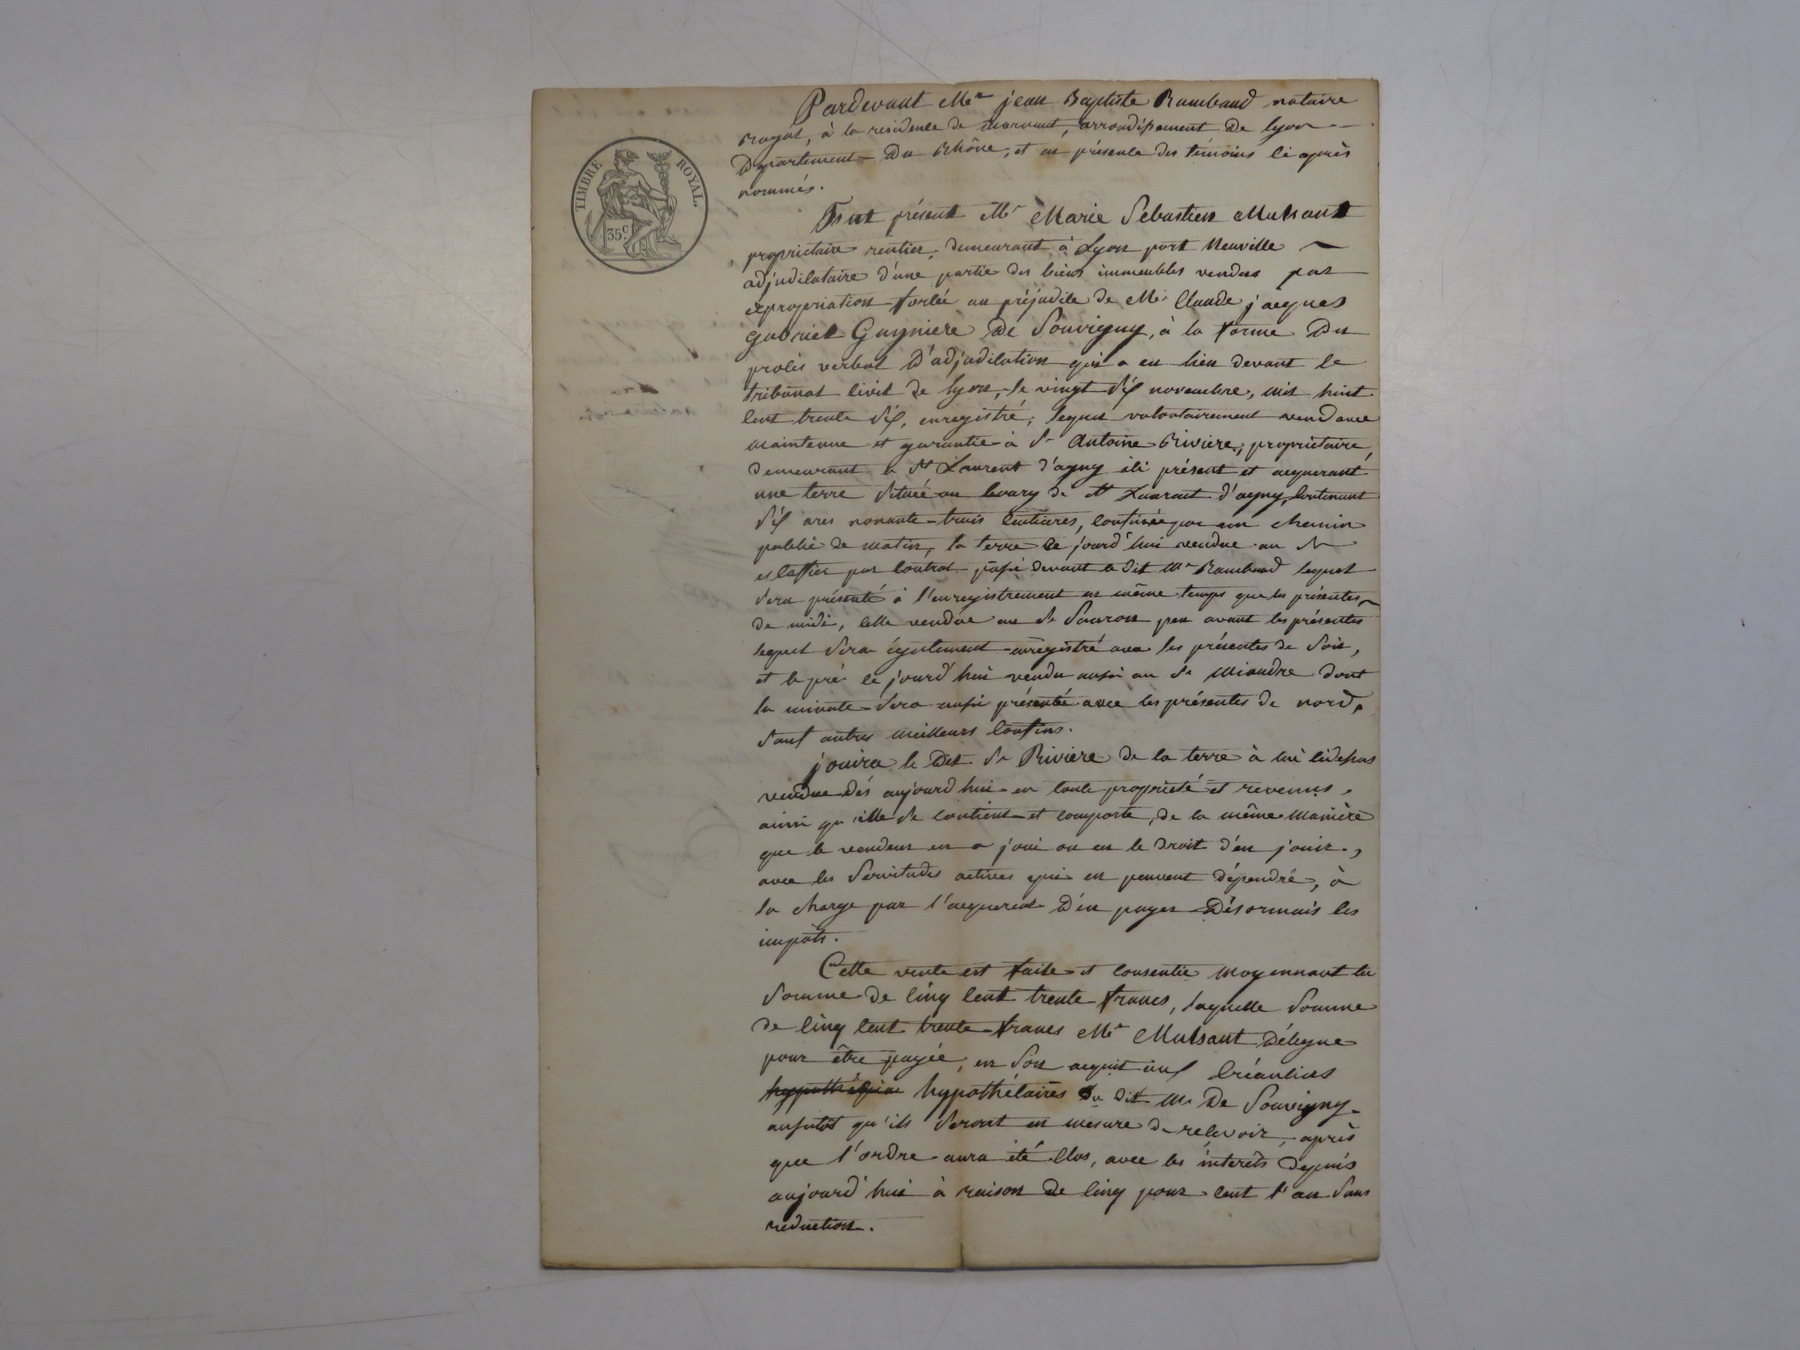 TIMBRE ROYAL.
35c.
Pardevant Me jean Baptiste Rambaud notaire
Royal, à la residence de mornant, arrondissement de lyon
Département Du Rhône, et en présence des témoins ci après
nommés.
Fut présent Mr Marie Sébastien Mulsant
propriétaire rentier, demeurant à Lyon port Neuville
adjudicataire d'une partie des biens immeubles vendus par
expropriation forcée au préjudice de Mr Claude jacques
gabriel Gagniere De Souvigny, à la forme Du
procès verbal D'adjudication qui a eu lieu devant le
tribunal civil de lyon, le vingt six novembre, mil huit
cent trente six, enregistré; lequel volontairement vend avec
maintenue et garantie à Sr Antoine Rivière, propriétaire,
demeurant à St Laurent d'agny ici présent et acquerant
une terre située au bourg de St Laurent d'agny, Contenant
six ares nonante-trois centiares, confinée par un chemin
public de matin, la terre ce jourd'hui vendue au Sr
par contrat passé devant le dit Me Rambaud lequel
sera présenté à l'enregistrement en même temps que les présentes
de midi, celle vendue au Sr peu avant les présentes
lequel sera également enregistré avec les présentes de soir,
et le pré ce jourd'hui vendu aussi au Sr Miandre dont
la minute sera aussi présentée avec les présentes de nord,
sauf autres meilleurs confins.
jouira le Dit Sr Rivière de la terre à lui cidessus
vendue Dès aujourd'hui en toute propriété et revenus,
ainsi qu'elle se contient et comporte, de la même manière
que le vendeur en a joui ou eu le droit d'en jouir,
avec les Servitudes actives qui en peuvent dépendre, à
la charge par l'acquereur D'en payer Désormais les
impôts.
Cette vente est faite et consentie moyennant la
somme de cinq cent trente francs, laquelle somme
de cinq cent trente francs Mr Mulsant Délegue
pour être payée, en son acquit aux créanciers
hypothécaires du dit Mr De Souvigny
aussitôt qu'ils seront en mesure de recevoir, après
que l'ordre aura été clos, avec les intérêts depuis
aujourd'hui à raison de cinq pour cent l'an sans
réduction.